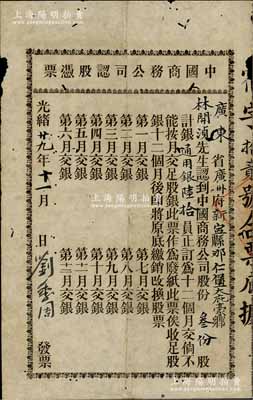 上海陽明拍賣
中國商務公司認股憑票
廣東省廣州府新寧縣那仁堡
林開 先生認到中國商務公司股份叁份股
計銀通用銀陸拾員正訂為十二個月交倘不
能按月交足股銀此票作為廢紙此票俟收足股
銀十二個月後即將原底繳銷改換股票
第一月交銀 第七月交銀
第二月交銀 第八月交銀
第三月交銀 第九月交銀
第四月交銀 第十月交銀
第五月交銀 第十一月交銀
第六月交銀 第十二月交銀
光緒廿九年十一月 日 劉 周 發票